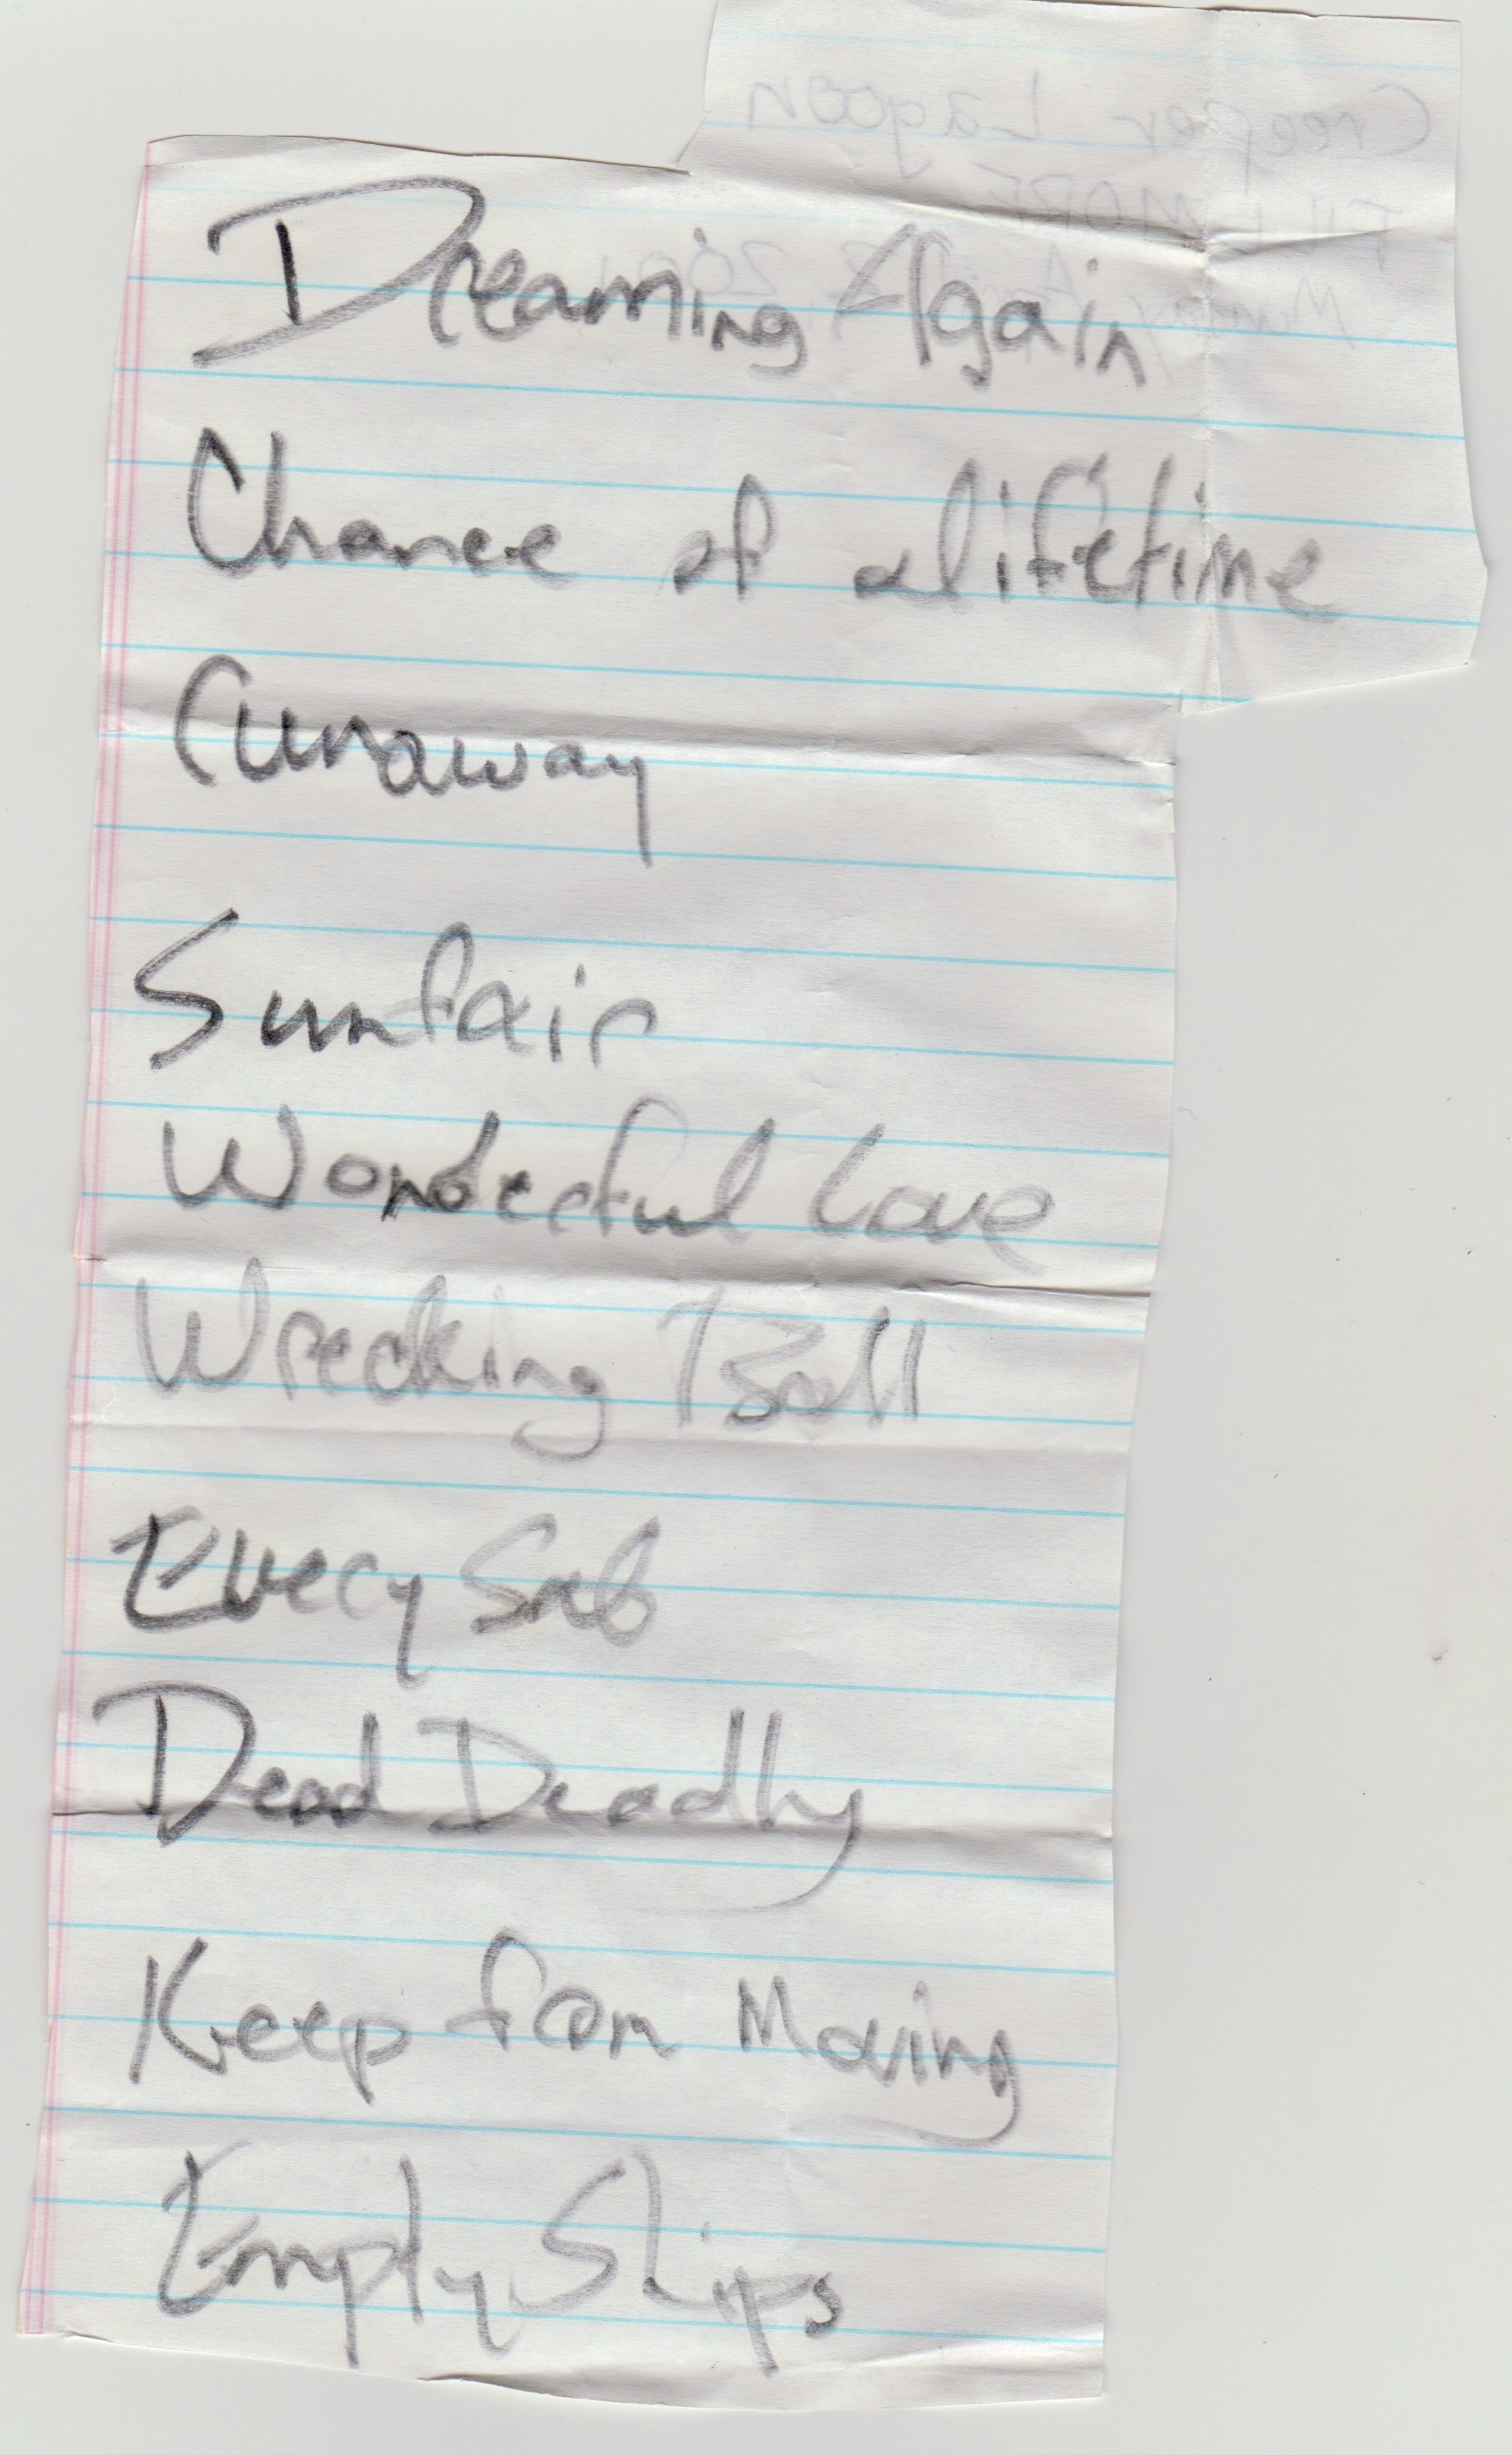 Creeper Lagoon
FILLMORE
Dreaming Again
Chance of a lifetime
runaway
Sunfair
Wonderful Love
Wrecking Ball
Every
Dead Deadly
Keep from Moving
Empty Ships